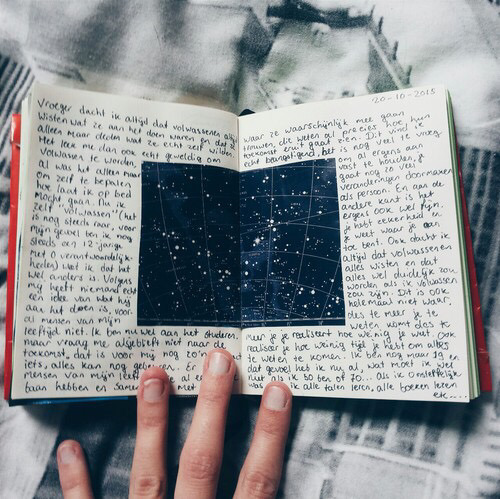 Vroeger dacht ik altijd dat volwassenen altijd
wisten wat ze aan het doen waren en dat ze
alleen maar deden wat ze echt zelf wilden.
Het leek me dan ook echt geweldig om
volwassen te worden,
al was het alleen maar
om zelf te bepalen
hoe laat ik op bed
mocht gaan. Nu ik
zelf "volwassen" (het
is nog steeds raar, voor
mijn gevoel ben ik nog
steeds een 12-jarige
met 0 verantwoordelijk-
heden) weet ik dat het
wel anders is. Volgens
mij heeft niemand echt
een idee van wat hij
aan het doen is, voor-
al mensen van mijn
leeftijd niet. Ik ben nu wel aan het studeren,
maar vraag me alsjeblieft niet naar de
toekomst, dat is voor mij nog zo'n
iets, alles kan nog gebeuren. Er
mensen van mijn leef al een
baan hebben en samen met
20-10-2015
waar ze waarschijnlijk mee gaan
trouwen, die weten al precies hoe hun
toekomst eruit gaat zien. Dit vind ik
echt beangstigend, het is nog veel te vroeg
om al ergens aan
vast te houden, je
gaat nog zo veel
veranderingen doormaken
als persoon. En aan de
andere kant is het
ergens ook wel fijn.
Je hebt zekerheid en
je weet waar je aan
toe bent. Ook dacht ik
altijd dat volwassenen
alles wisten en dat
alles wel duidelijk zou
worden als ik volwassen
zou zijn. Dit is ook
helemaal niet waar,
des te meer je te
weten komt des te
meer je je realiseert hoe weinig je weet en
realiseer je hoe weinig tijd je hebt om alles
te weten te komen. Ik ben nog maar 19 en
dat gevoel heb ik nu al, wat moet ik wel
niet als ik 50 ben of 70... Als ik onsterfelijk
was ik alle talen leren, alle boeken lezen
etc....